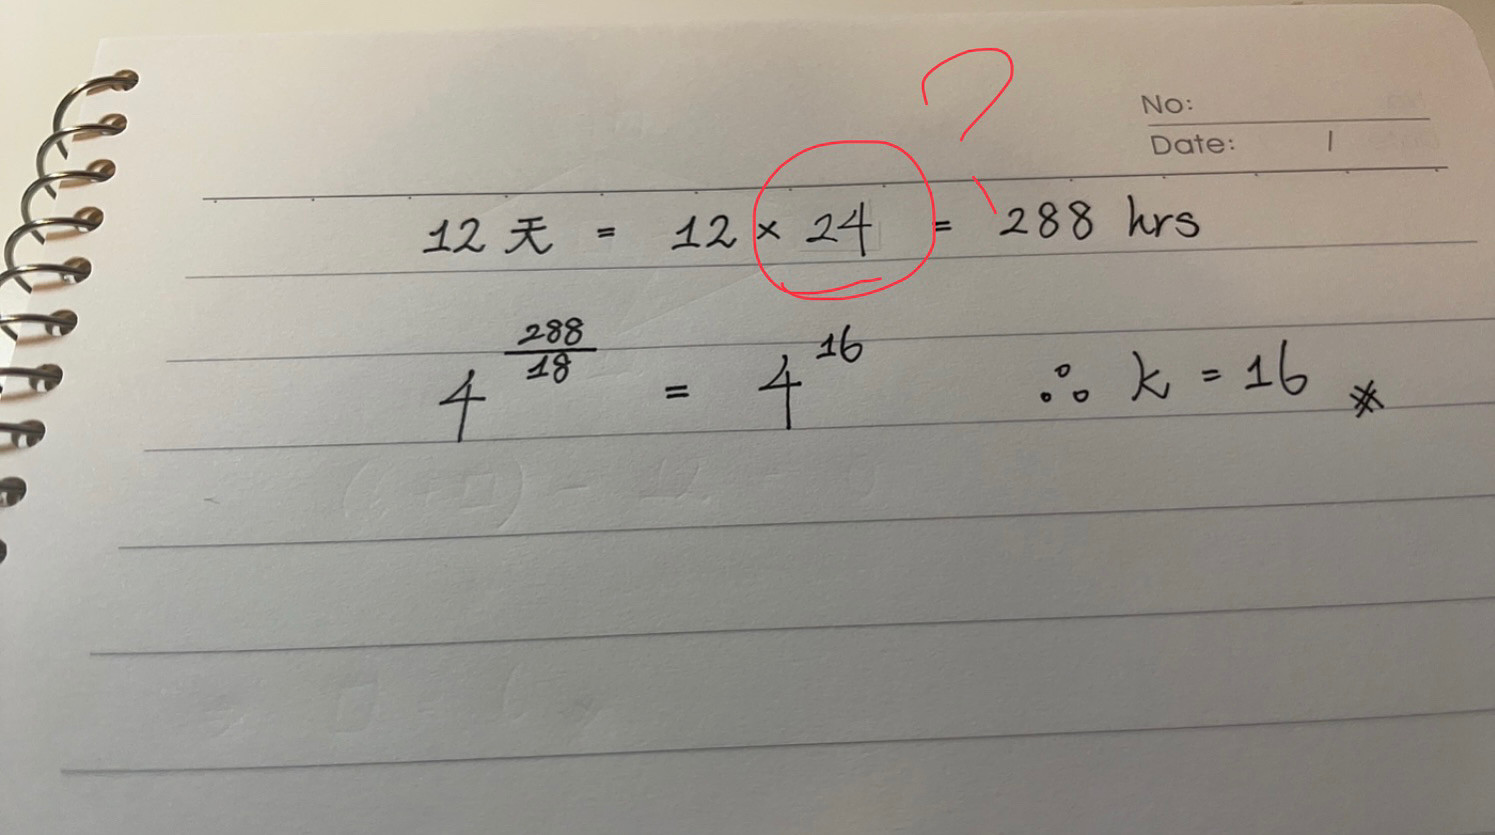 ?
No:
Date: /
12 天 = 12 × 24 = 288 hrs
4^(288/18) = 4^16 ∴ k = 16 ※